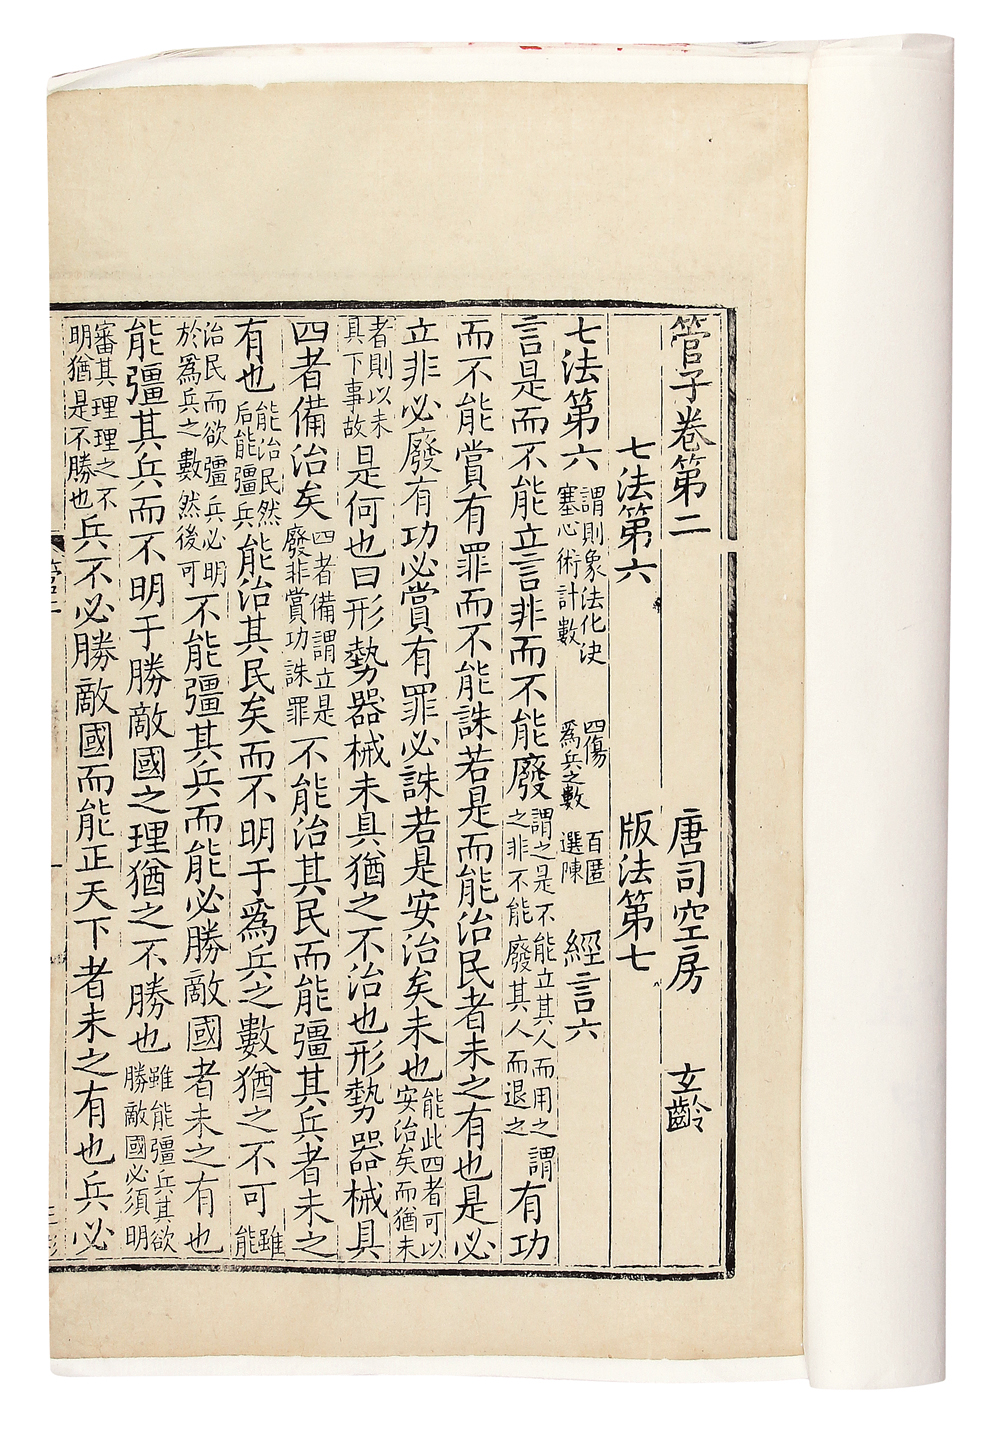 管子卷第二 唐司空房 玄齡
七法第六 版法第七
七法第六 謂則象法化决塞心術計數 四傷 百匿 為兵之數 選陳 經言六
言是而不能立言非而不能廢謂之是不能立其人而用之謂之非不能廢其人而退之有功
而不能賞有罪而不能誅若是而能治民者未之有也是必
立非必廢有功必賞有罪必誅若是安治矣未也能此四者可以安治矣而猶未
者則以未具下事故是何也曰形勢器械未具猶之不治也形勢器械具
四者備治矣四者備謂立是廢非賞功誅罪不能治其民而能彊其兵者未之
有也能治民然后能彊兵能治其民矣而不明于爲兵之數猶之不可雖能
治民而欲彊兵必明於爲兵之數然後可不能彊其兵而能必勝敵國者未之有也
能彊其兵而不明于勝敵國之理猶之不勝也雖能彊兵其欲勝敵國必須明
審其理理之不明猶是不勝也兵不必勝敵國而能正天下者未之有也兵必